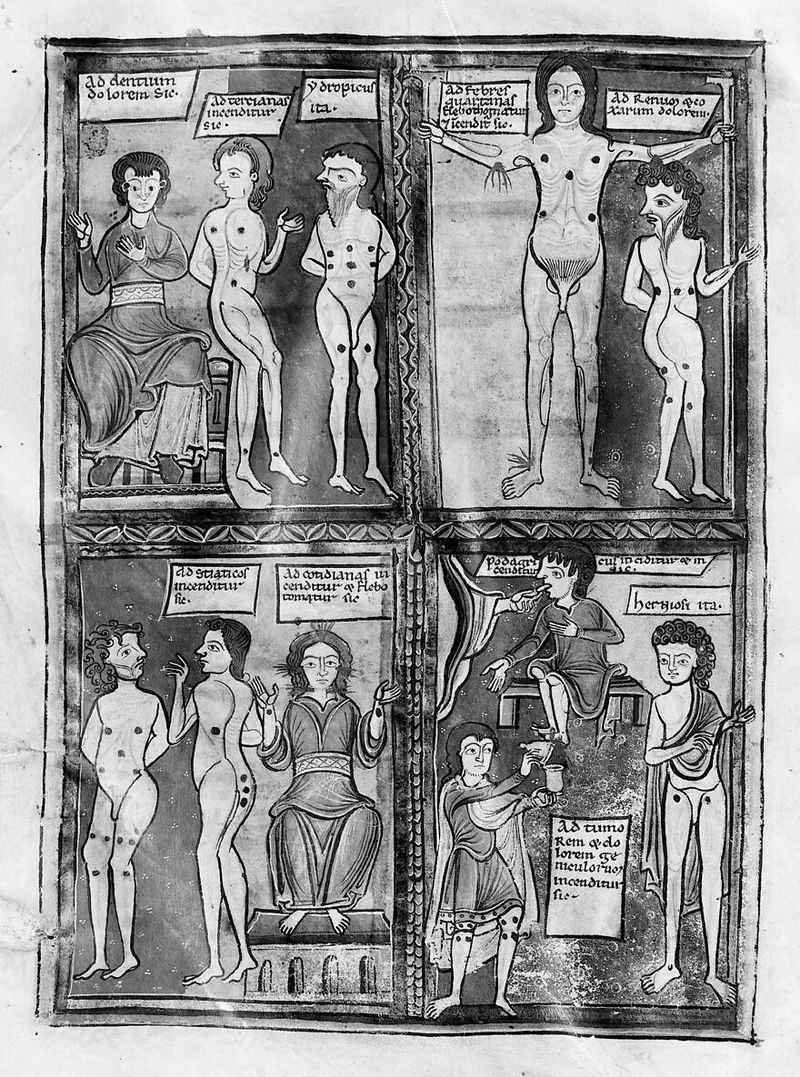 Ad dentium
dolorem Sic.
Ad tercianas
incenditur
sic.
ydropicus
ita.
Ad Febres
quartanas
flebothomatur
7 icendit sic.
Ad Renuȝ & co
xarum dolorem.
Ad Stiaticos
incenditur
sic.
Ad cotidianas in
cenditur & flebo
tomatur sic
Podagri
cus inciditur & in
cenditur
sic.
herniosi ita.
Ad tumo
Rem & do
lorem ge
niculoruȝ
incenditur
sic.